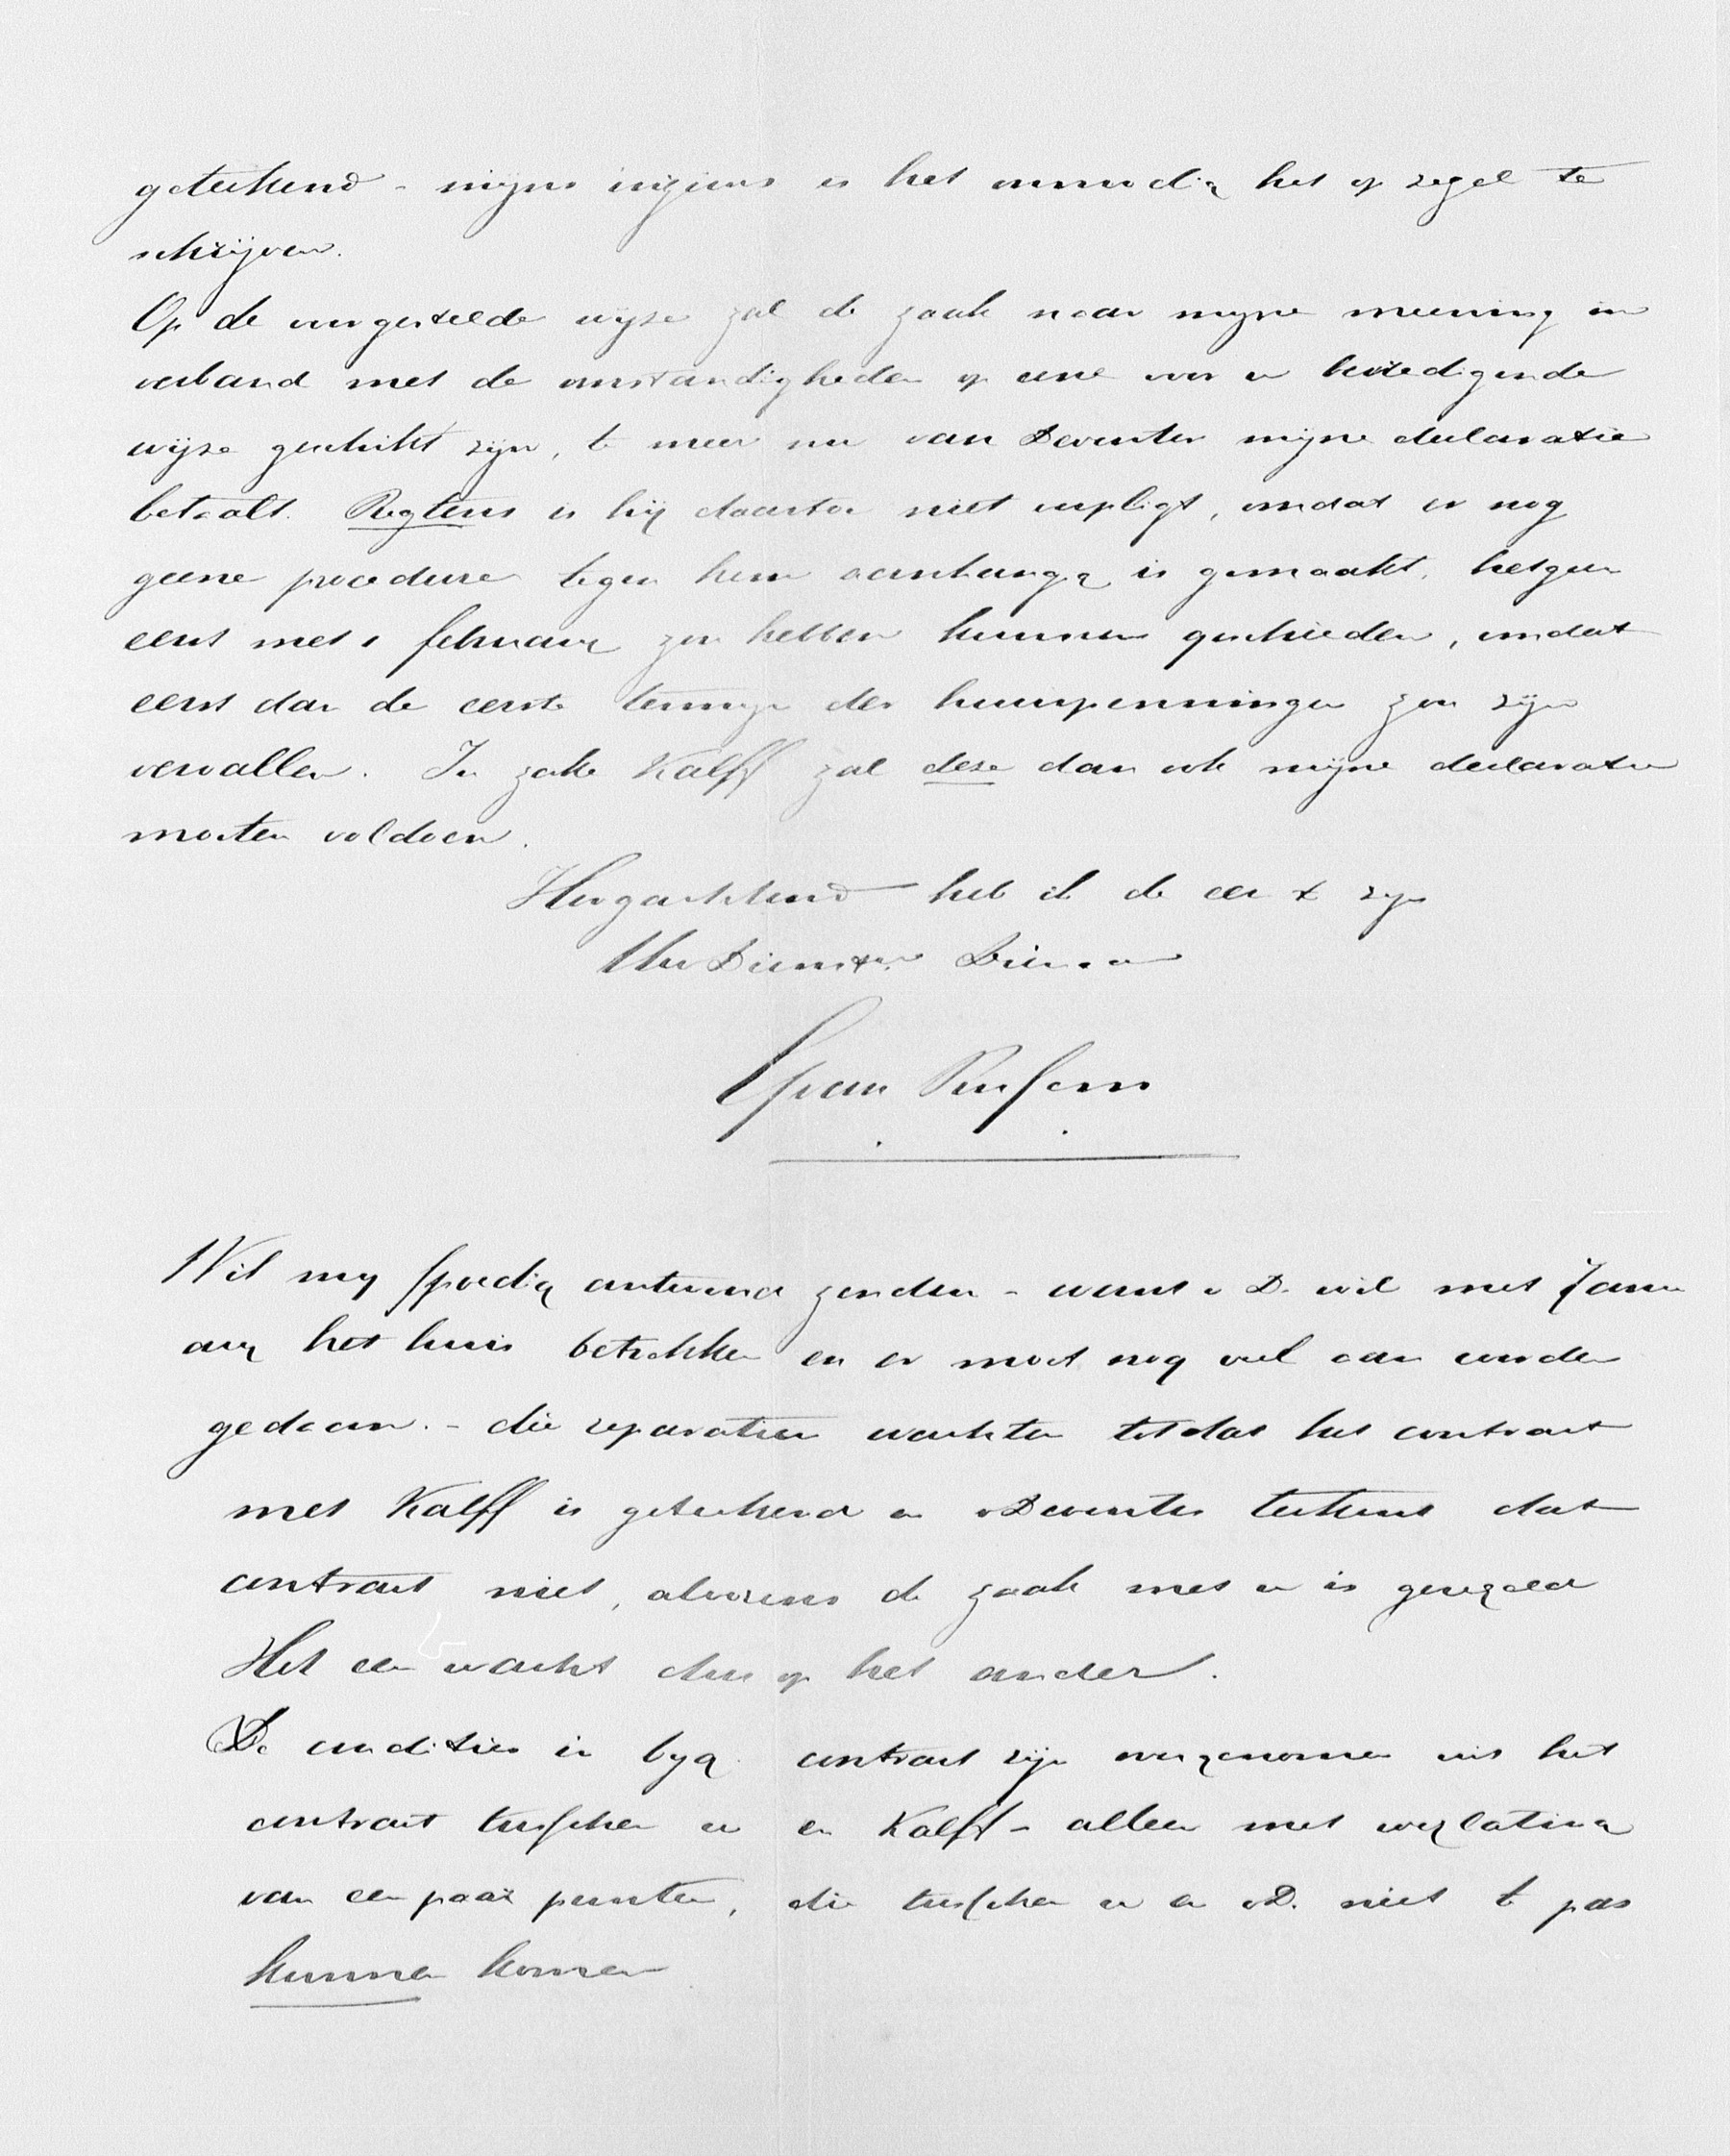 geteekend - mijns inziens is het onnoodig het op zegel te
schrijven.
Op de voorgestelde wijze zal de zaak naar mijne meening in
verband met de omstandigheden op eene voor u bevredigende
wijze geschikt zijn, te meer nu van Deventer mijne declaratie
betaalt. Regtens is hij daartoe niet verpligt, omdat er nog
geene procedure tegen hem aanhangig is gemaakt, hetgeen
eerst met 1 februarij zou hebben kunnen geschieden, omdat
eerst dan de eerste termijn der huurpenningen zou zijn
vervallen. In zake Kalff zal deze dan ook mijne declaratie
moeten voldoen.
Hoogachtend heb ik de eer te zijn
Uw Dienstw. Dienaar
Wil mij spoedig antwoord zenden - want v D. wil met Janu
arij het huis betrekken en er moet nog veel aan worden
gedaan. - die reparatien wachten totdat het contract
met Kalff is geteekend en v Deventer teekent dat
contract niet, alvorens de zaak met u is geregeld
Het een wacht dus op het ander.
De condities in bijg. contract zijn overgenomen uit het
contract tusschen u en Kalff - alleen met weglating
van een paar punten, die tusschen u en v D. niet te pas
kunnen komen